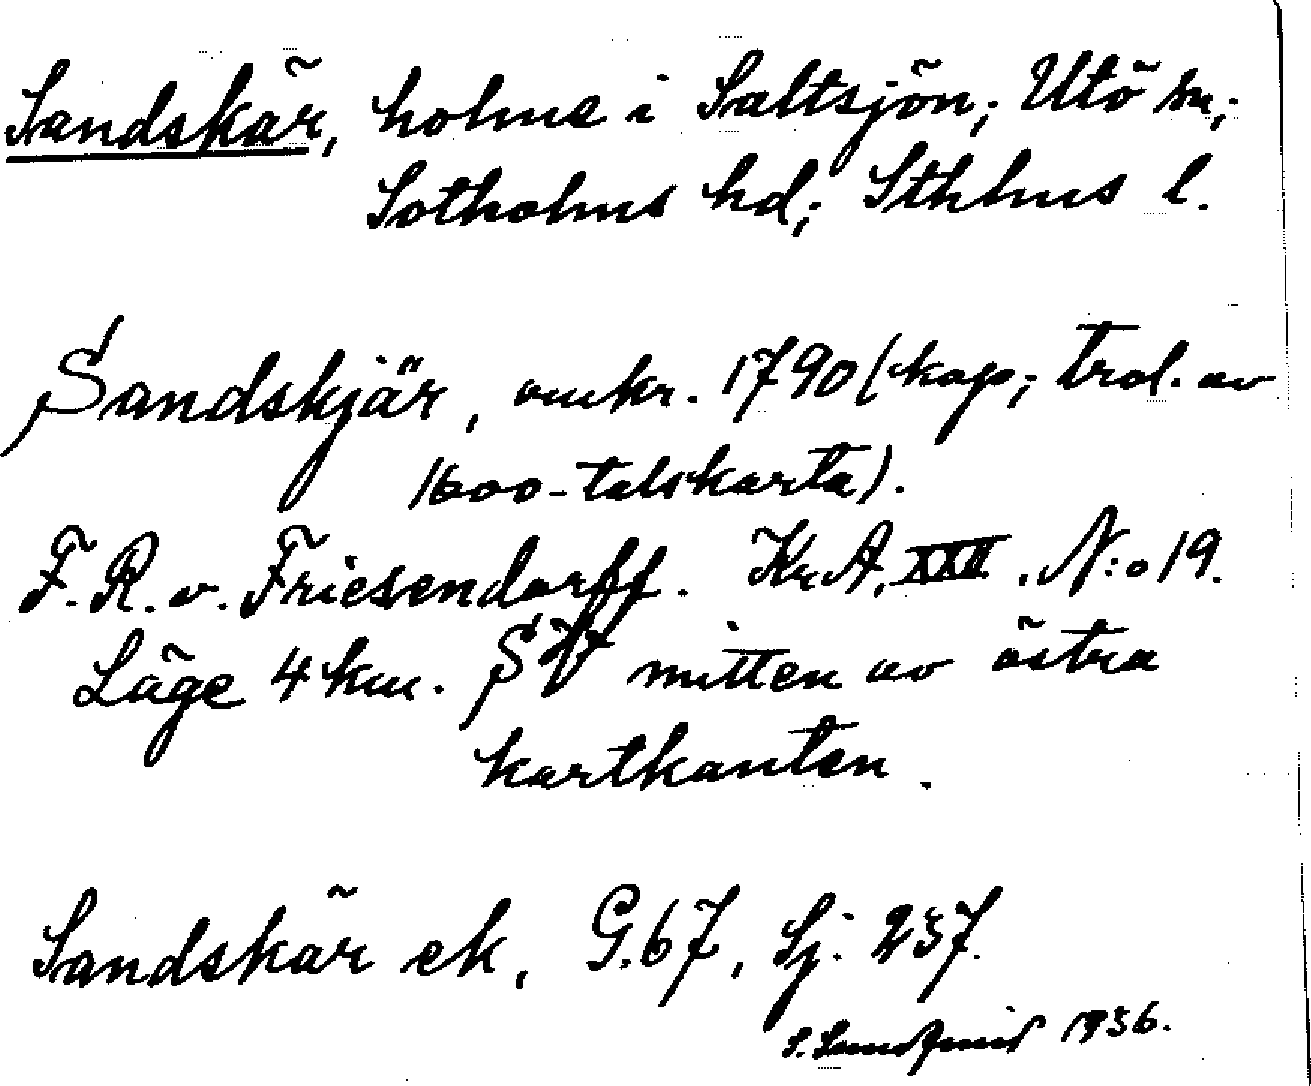 Sandskär, holme i Saltsjön; Utö sn;
Sotholms hd; Sthlms l.
Sandskjär, omkr. 1790 (kop; trol. av
1600-talskarta).
F. R. v. Friesendorff. KrA, XXII, N:o 19.
Läge 4 km. SV mitten av östra
kartkanten.
Sandskär ek, G.67, Sj. 237.
1936.